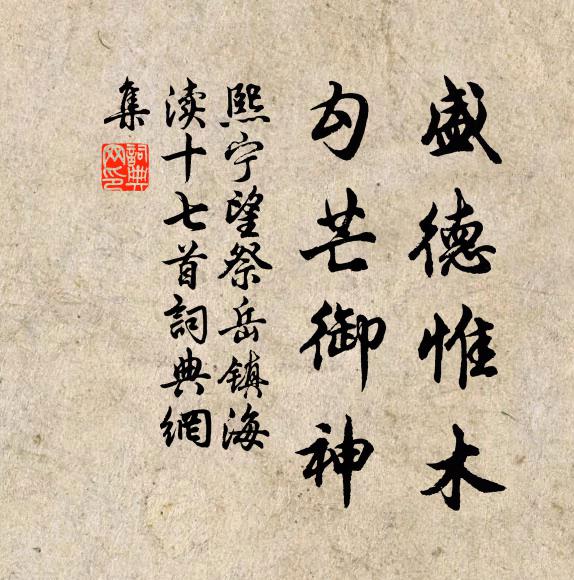 盛德惟木
勾芒御神
熙宁望祭岳镇海
渎十七首詞典網
集
詞典
网印